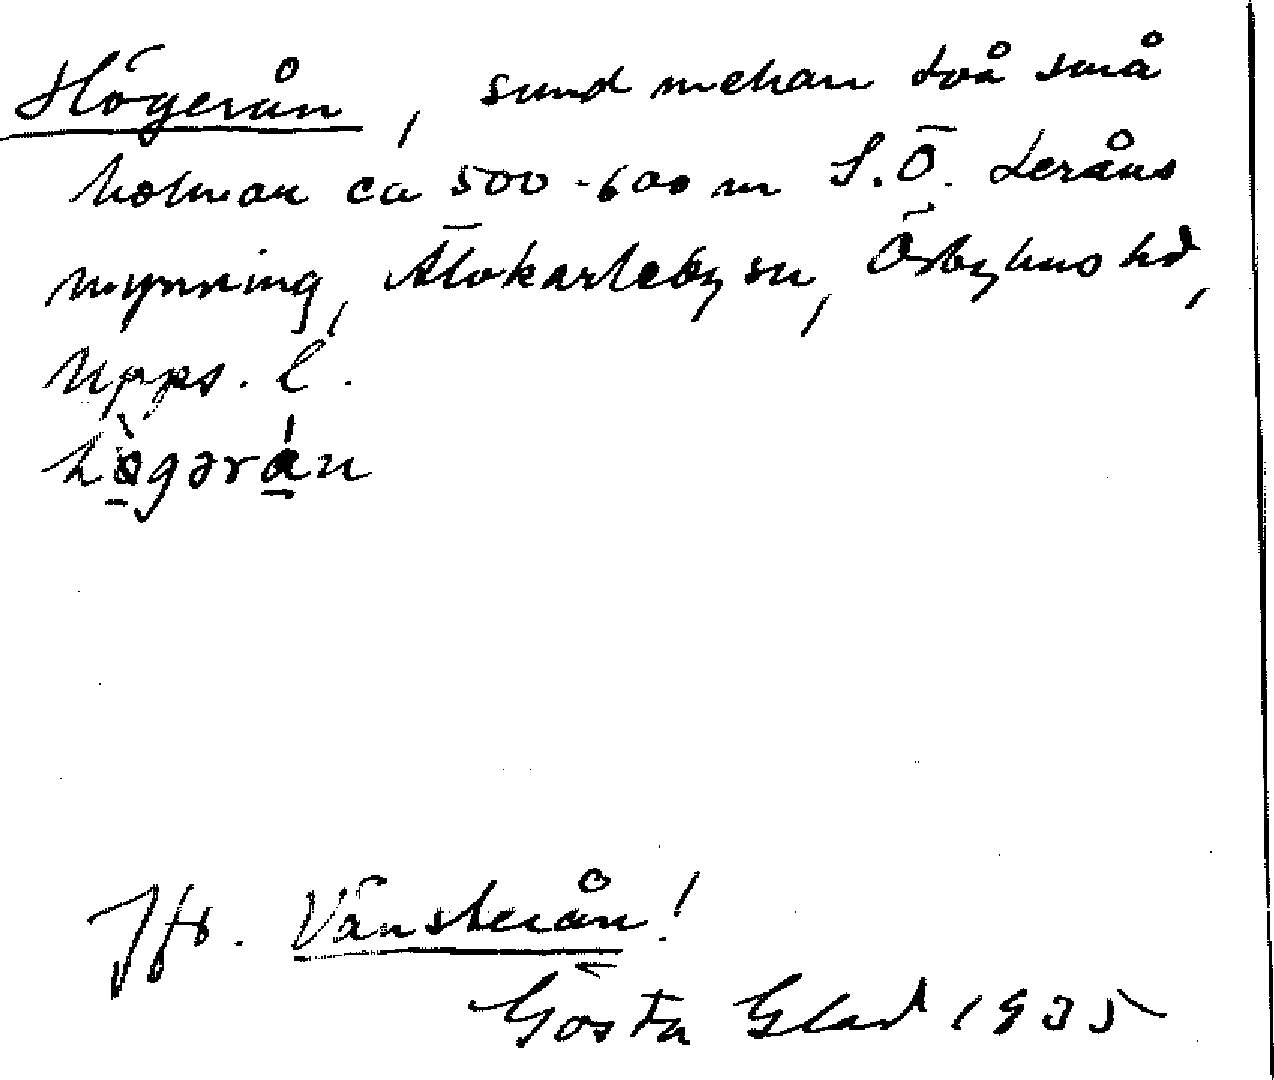 Högerån, sund mellan två små
holmar ca 500-600 m S.Ö. Leråns
mynning, Älvkarleby sn, Örbyhus hd,
Upps. l.
hö̀gərán
Jfr. Vänsterån!
Gösta Glad 1935